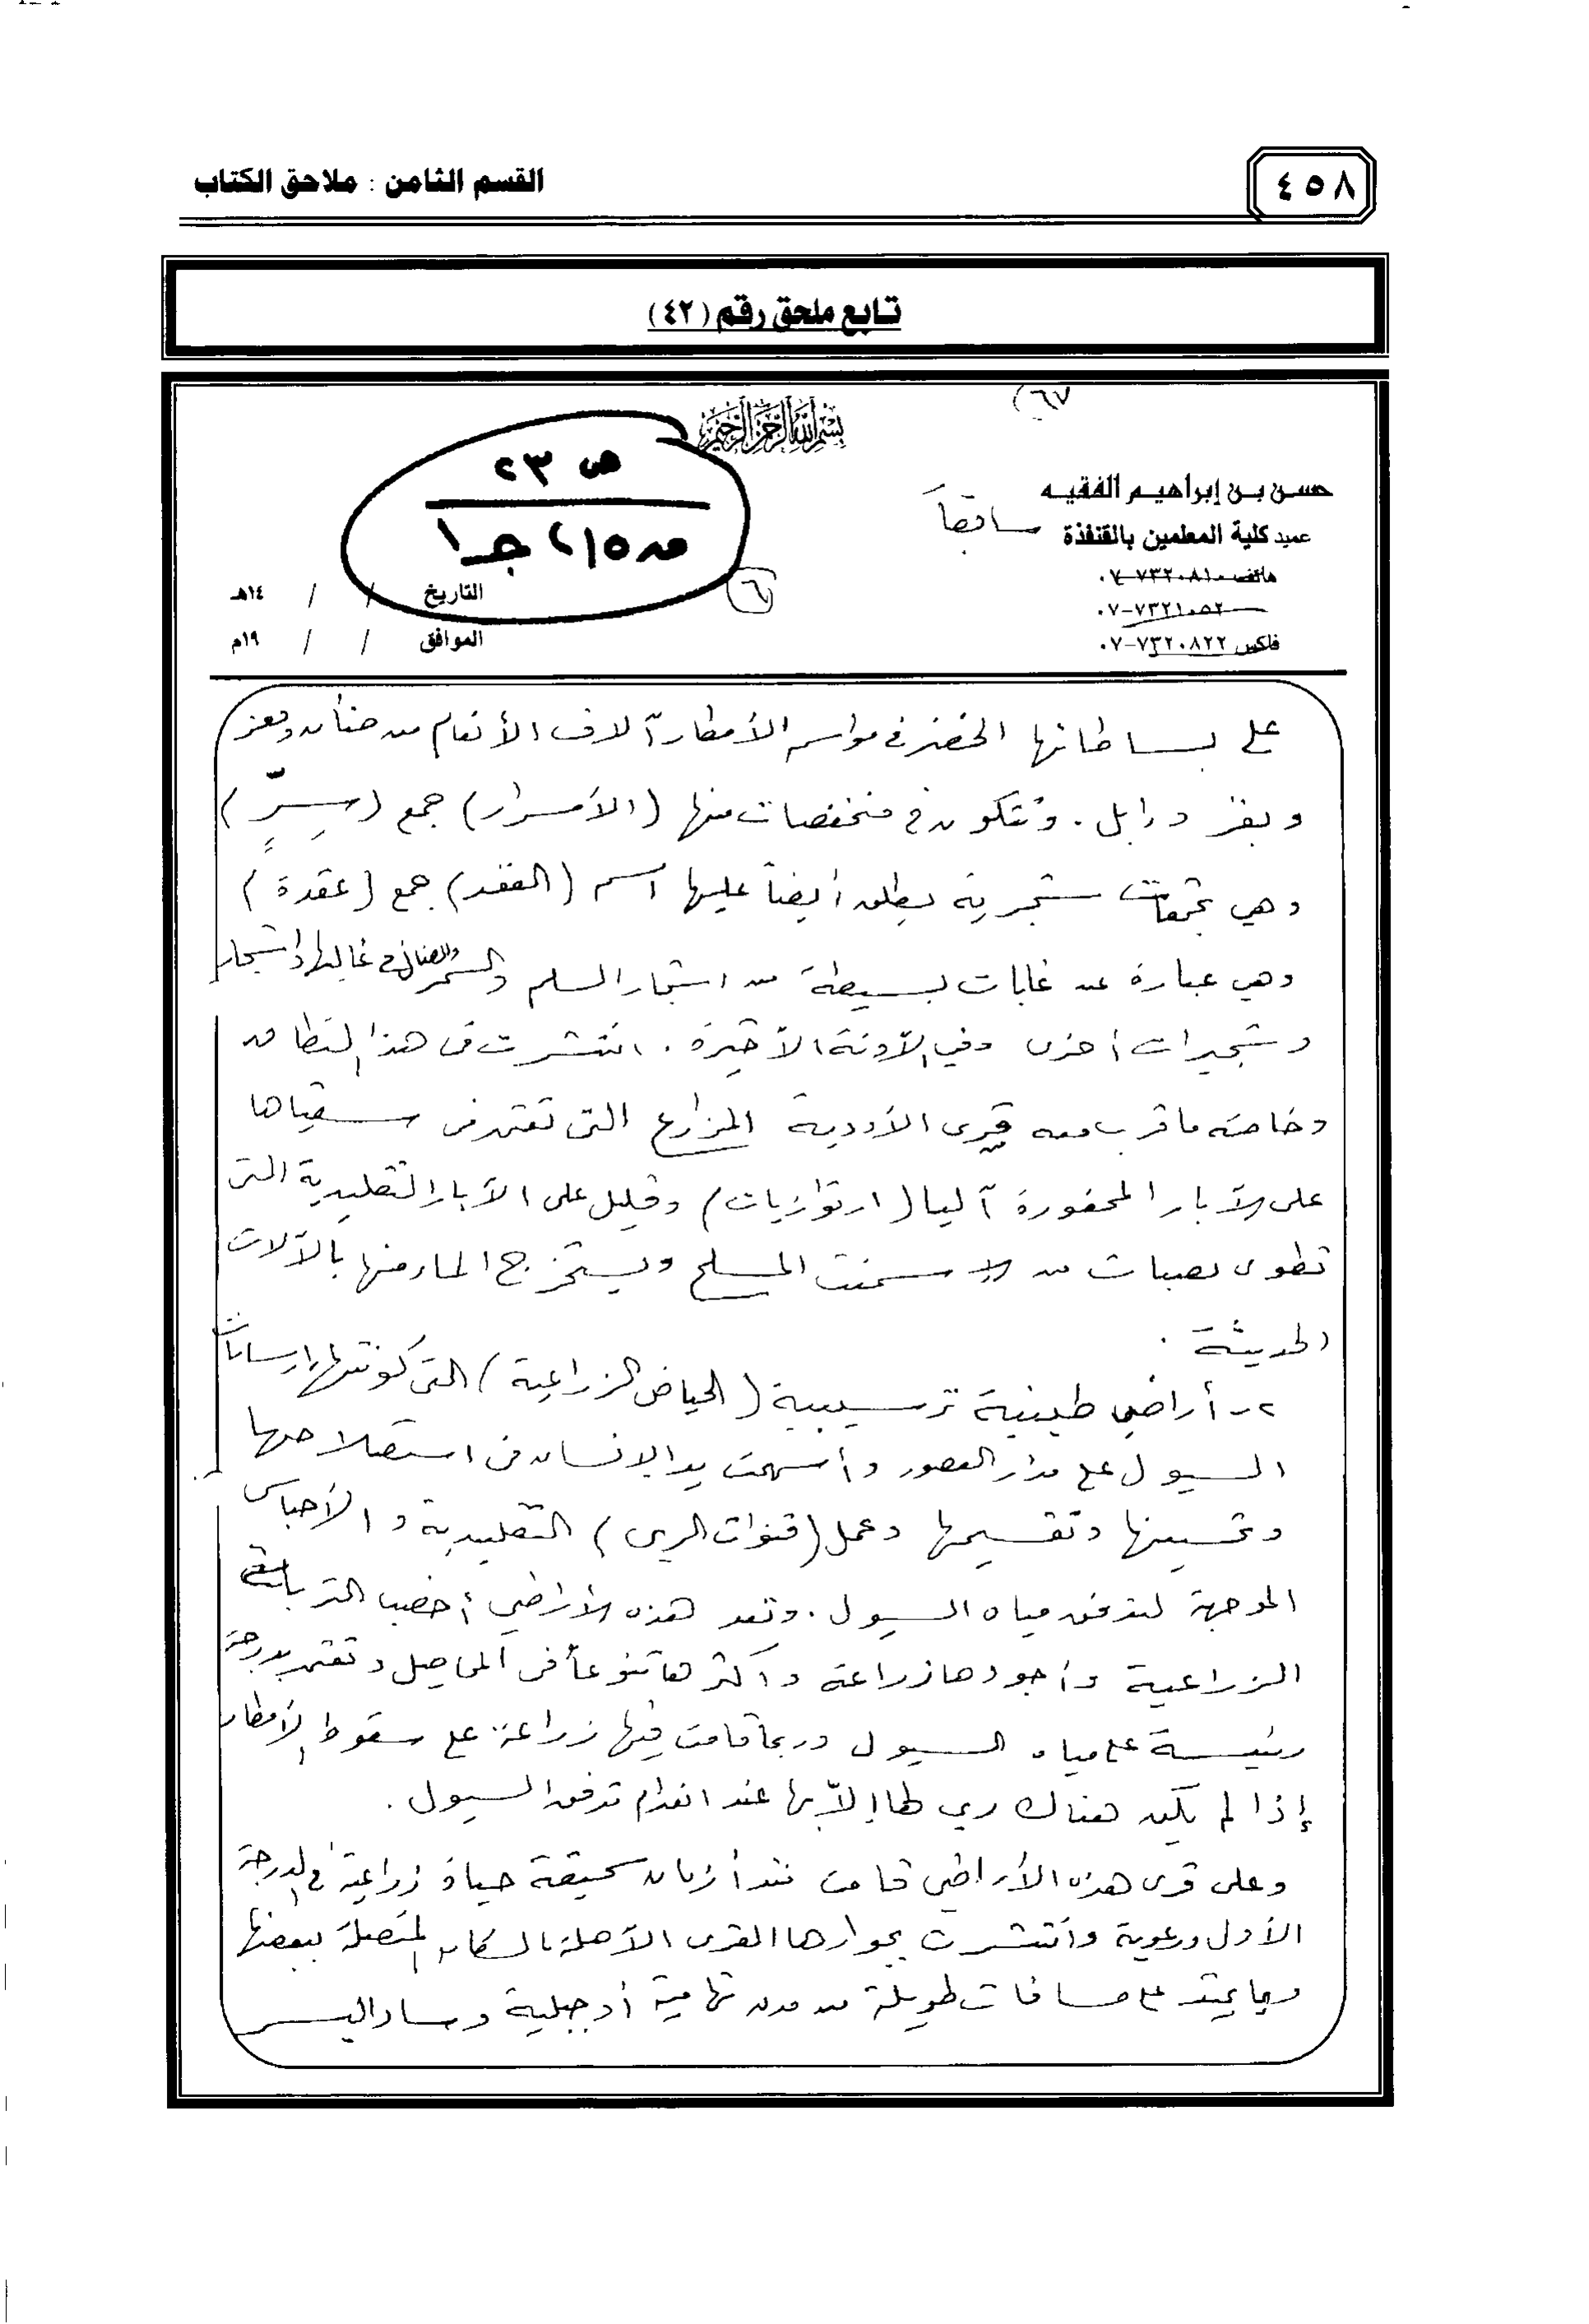 ٤٥٨
القسم الثامن : ملاحق الكتاب
تابع ملحق رقم (٤٢)
٦٧)
بسم الله الرحمن الرحيم
ص ٢٣
ص ٢١٥ جـ ١
حسن بن إبراهيم الفقيه
عميد كلية المعلمين بالقنفذة سابقاً
هاتف ٧٣٢٠٨١٠-٠٧
٧٣٢١٠٥٢-٠٧
فاكس ٧٣٢٠٨٢٢-٠٧
٦
التاريخ / / ١٤هـ
الموافق / / ١٩م
على بساطاتها الخضر في مواسم الأمطار آلاف الأنعام من ضأن ومعز
وبقر وإبل . وتتكون في منخفضات منها (الأسرار) جمع (سِرٍّ)
وهي تجمعات شجرية يطلق أيضاً عليها اسم (العقد) جمع (عقدة)
وهي عبارة عن غابات بسيطة من اشجار السلم والسمر والضال في غالبها واشجار
وشجيرات أخرى وفي الآونة الأخيرة . انتشرت في هذا النطاق
وخاصة ما قرب منه قرى الأودية المزارع التي تعتمد في سقياها
على الآبار المحفورة آليا (ارتوازيات) وقليل على الآبار التقليدية التي
تطوى بصبات من الاسمنت المسلح ويستخرج الماء منها بالآلات
الحديثة .
٢- أراضي طينية ترسيبية (الحياض الزراعية) التي كونتها إرسابات
السيول على مدار العصور وأسهمت يد الإنسان في استصلاحها
وتحسينها وتقسيمها وعمل (قنوات الري) التقليدية والأحباس
الموجهة لتدفق مياه السيول . وتعد هذه الأراضي أخصب الترب
الزراعية وأجودها زراعة وأكثرها تنوعاً في المحاصيل وتعتمد بدرجة
رئيسية على مياه السيول وربما قامت فيها زراعة على سقوط الأمطار
إذا لم يكن هناك ري لها إلا بها عند انعدام تدفق السيول .
وعلى قرى هذه الأراضي قامت منذ أزمان سحيقة حياة زراعية في الدرجة
الأولى ورعوية وانتشرت بجوارها القرى الآهلة بالسكان المتصلة ببعضها
وبما يمتد على مسافات طويلة من مدن تهامية أو جبلية وساد اليسر